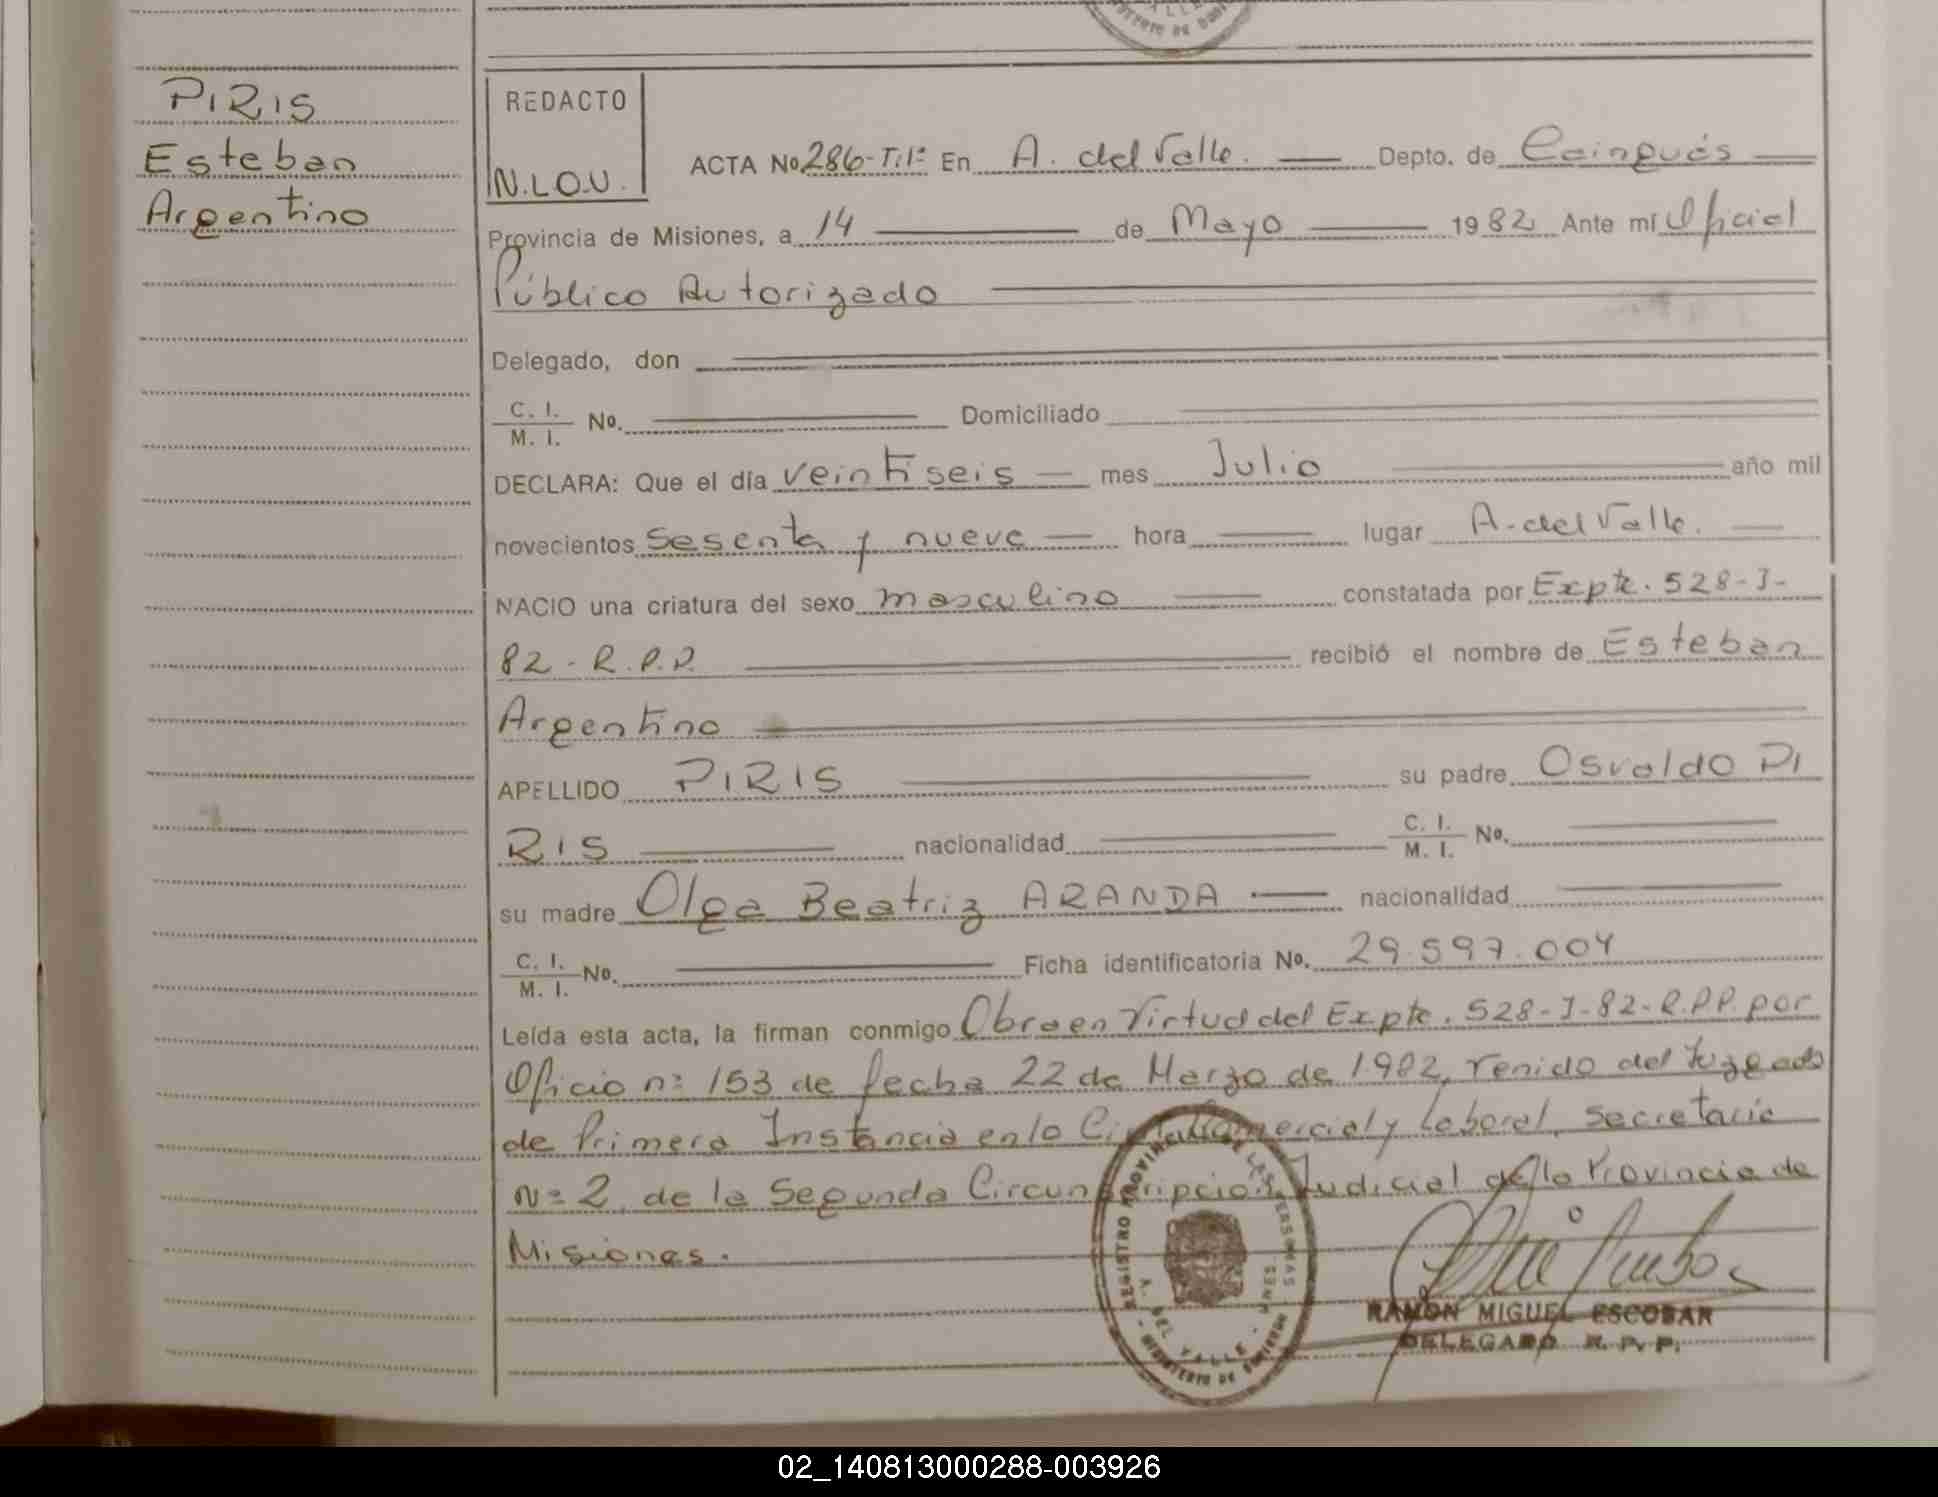 PIRIS
Esteban
Argentino
REDACTO
N.L.O.V.
ACTA No 286-T:1º En A. del Valle. Depto. de Cainguás
Provincia de Misiones, a 14 de Mayo 1982 Ante mí Oficial
Público Autorizado
Delegado, don
C. I.
M. I. No. Domiciliado
DECLARA: Que el día veintiseis mes Julio año mil
novecientos sesenta y nueve hora lugar A. del Valle.
NACIO una criatura del sexo masculino constatada por Expte. 528-J-
82-R.P.P. recibió el nombre de Esteban
Argentino
APELLIDO PIRIS su padre Osvaldo PI
RIS nacionalidad C. I.
M. I. No.
su madre Olga Beatriz ARANDA nacionalidad
C. I.
M. I. No. Ficha identificatoria No. 29.597.004
Leída esta acta, la firman conmigo Obra en Virtud del Expte. 528-J-82-R.P.P. por
Oficio nº 153 de fecha 22 de Marzo de 1982, venido del Juzgado
de Primera Instancia en lo Civil Comercial y Laboral, Secretaria
Nº 2, de la Segunda Circunscripcion Judicial de la Provincia de
Misiones.
REGISTRO PROVINCIAL DE LAS PERSONAS
A. DEL VALLE - MNES.
MINISTERIO DE GOBIERNO
RAMON MIGUEL ESCOBAR
DELEGADO R. P. P.
02_140813000288-003926